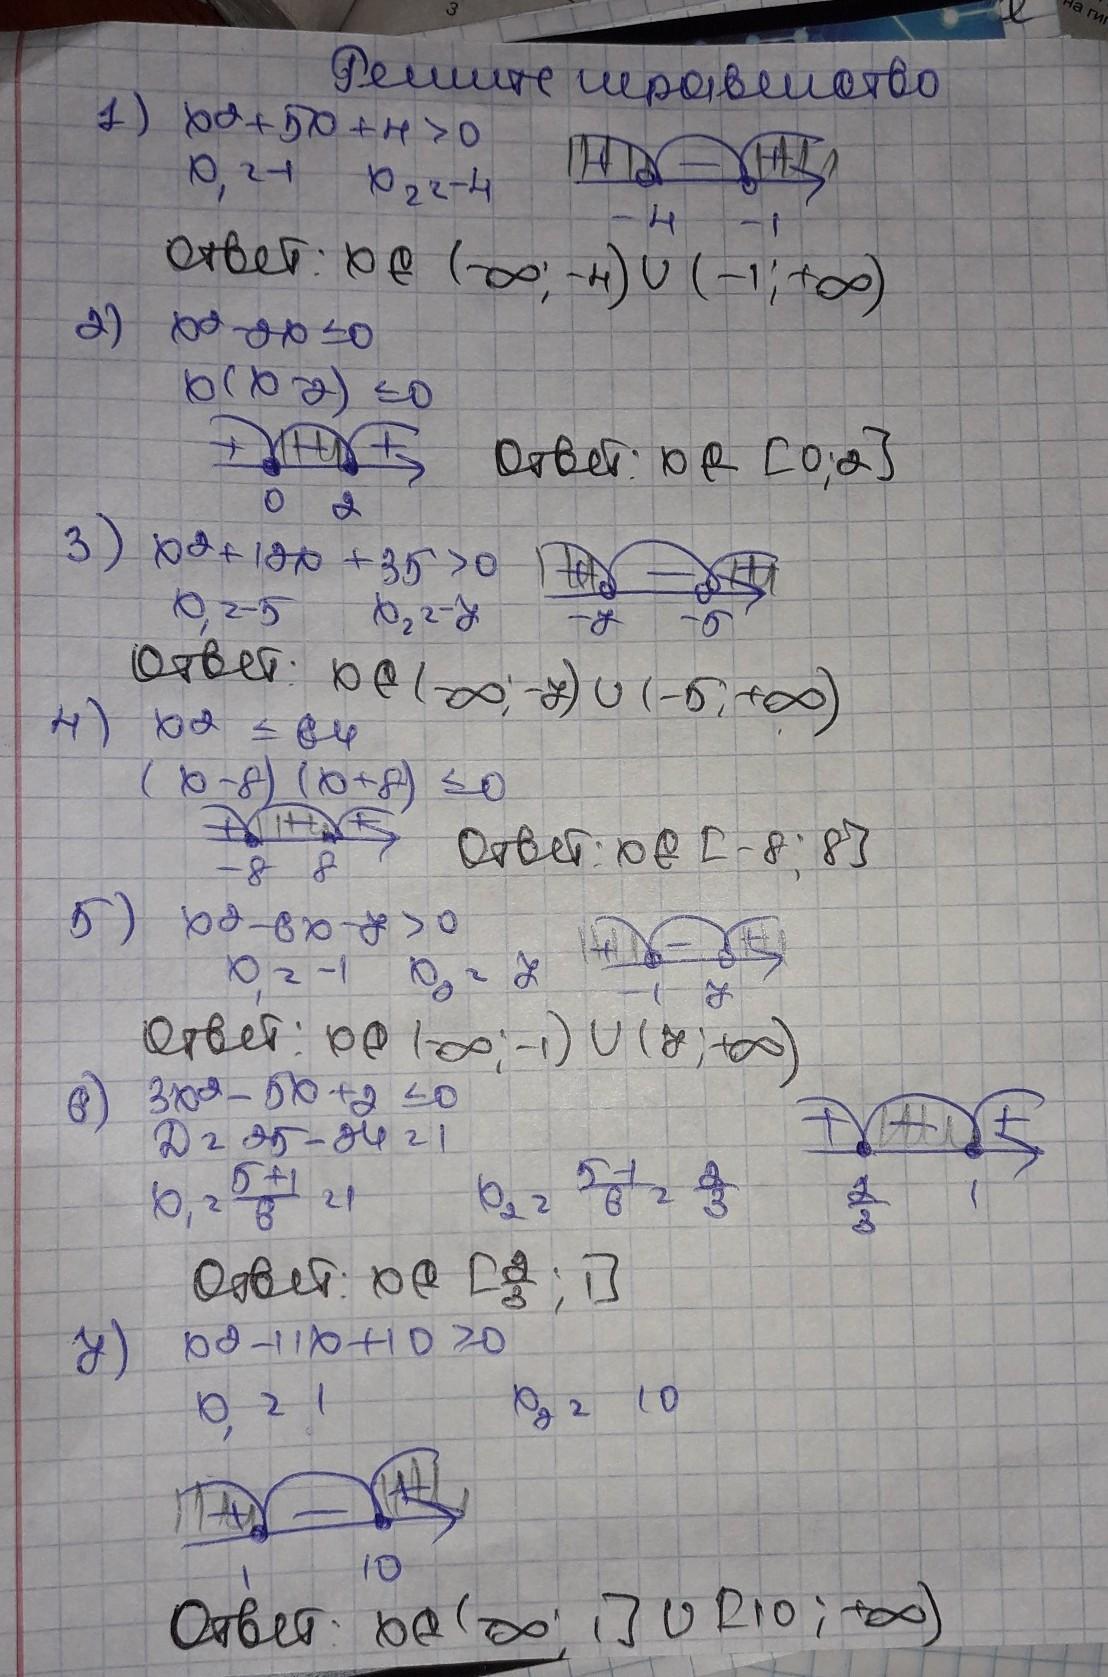 Решите неравенство
1) x² + 5x + 4 > 0
x₁ = -1 x₂ = -4
-4 -1
Ответ: x ∈ (-∞; -4) ∪ (-1; +∞)
2) x² - 2x ≤ 0
x(x-2) ≤ 0
0 2
Ответ: x ∈ [0; 2]
3) x² + 12x + 35 > 0
x₁ = -5 x₂ = -7
-7 -5
Ответ: x ∈ (-∞; -7) ∪ (-5; +∞)
4) x² ≤ 64
(x-8)(x+8) ≤ 0
-8 8
Ответ: x ∈ [-8; 8]
5) x² - 6x - 7 > 0
x₁ = -1 x₂ = 7
-1 7
Ответ: x ∈ (-∞; -1) ∪ (7; +∞)
6) 3x² - 5x + 2 ≤ 0
D = 25 - 24 = 1
x₁ = (5+1)/6 = 1 x₂ = (5-1)/6 = 2/3
2/3 1
Ответ: x ∈ [2/3; 1]
7) x² - 11x + 10 ≥ 0
x₁ = 1 x₂ = 10
1 10
Ответ: x ∈ (-∞; 1] ∪ [10; +∞)